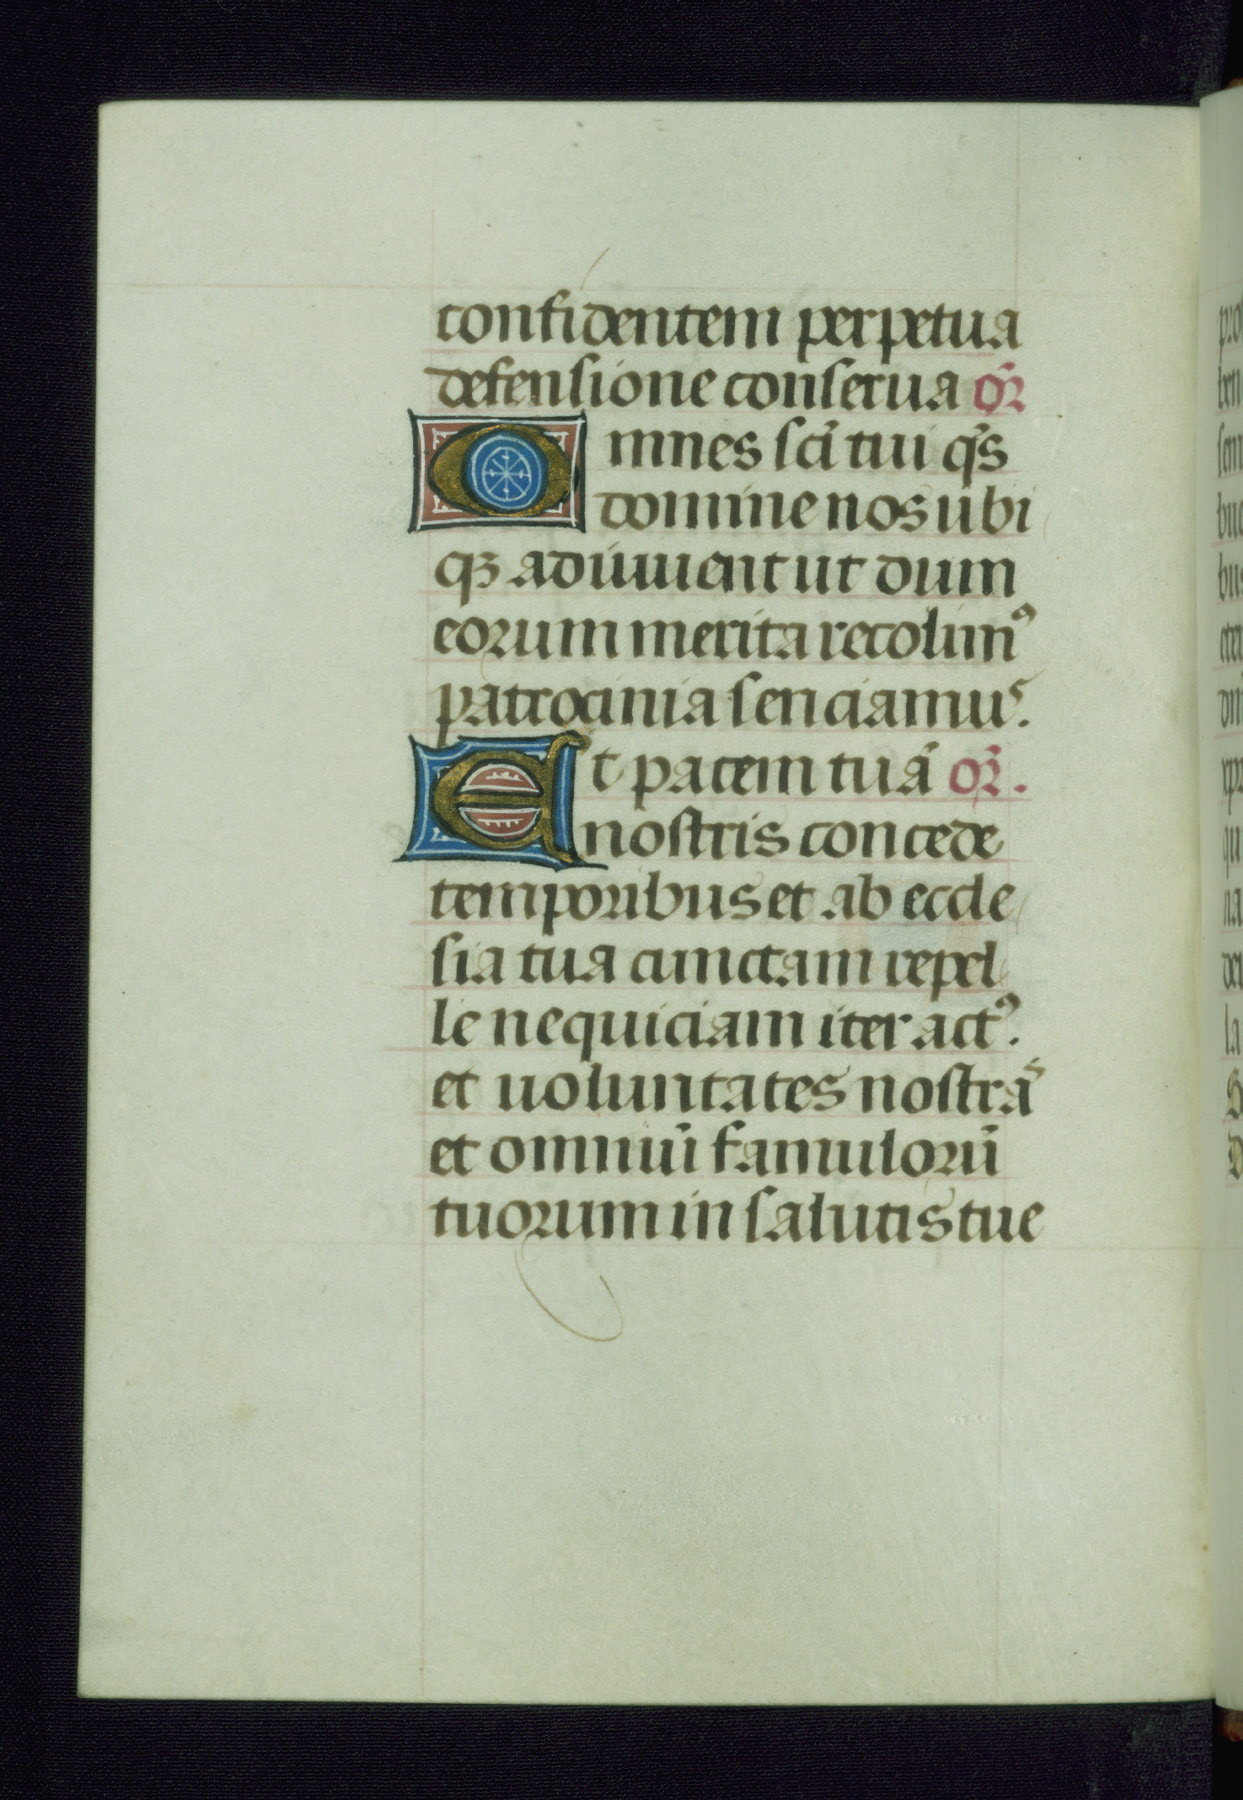 confidentem perpetua
defensione conserua or̄
Omnes sc̄i tui q̄s
domine nos ubi
qꝫ adiuuent ut dum
eorum merita recolimꝰ
patrocinia senciamus.
Et pacem tuā or̄.
nostris concede
temporibus et ab eccle
sia tua cunctam repel
le nequiciam iter actꝰ.
et uoluntates nostrās
et omniū famulorū
tuorum in salutis tue